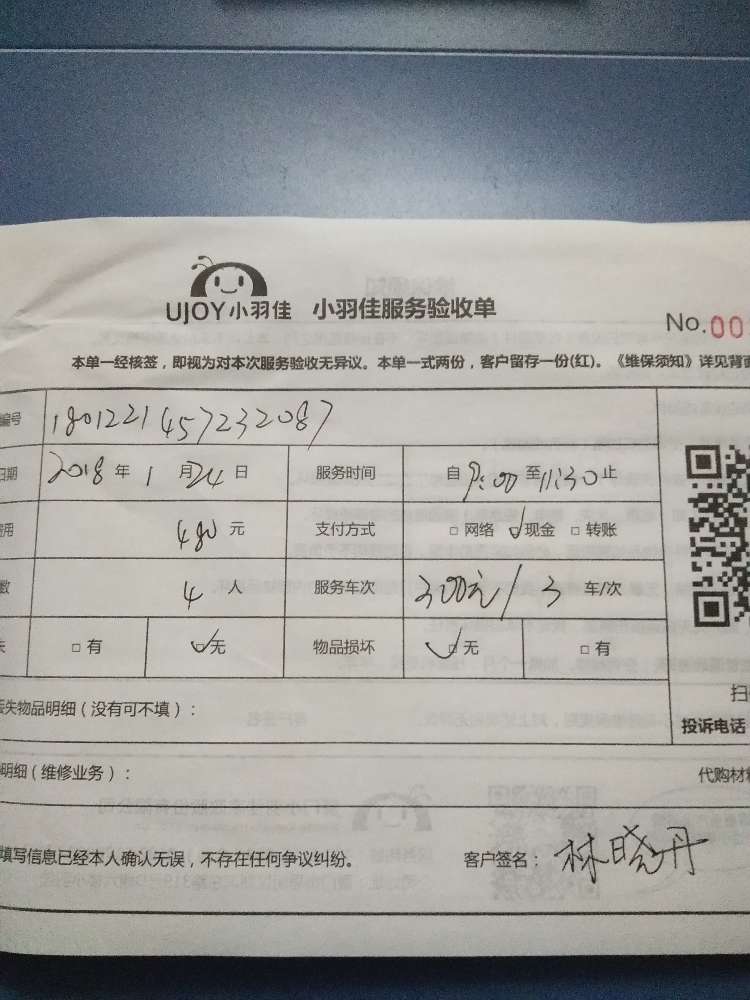 UJOY小羽佳 小羽佳服务验收单
No.00
本单一经核签，即视为对本次服务验收无异议。本单一式两份，客户留存一份(红)。《维保须知》详见背面
编号 1801221457232087
日期 2018 年 1 月 24 日 服务时间 自 9:00 至 11:30 止
费用 480 元 支付方式 □ 网络 ☑ 现金 □ 转账
数 4 人 服务车次 300元/3 车/次
失 □ 有 ☑ 无 物品损坏 ☑ 无 □ 有
丢失物品明细（没有可不填）：
扫
投诉电话
明细（维修业务）：
代购材料
填写信息已经本人确认无误，不存在任何争议纠纷。 客户签名：林晓丹